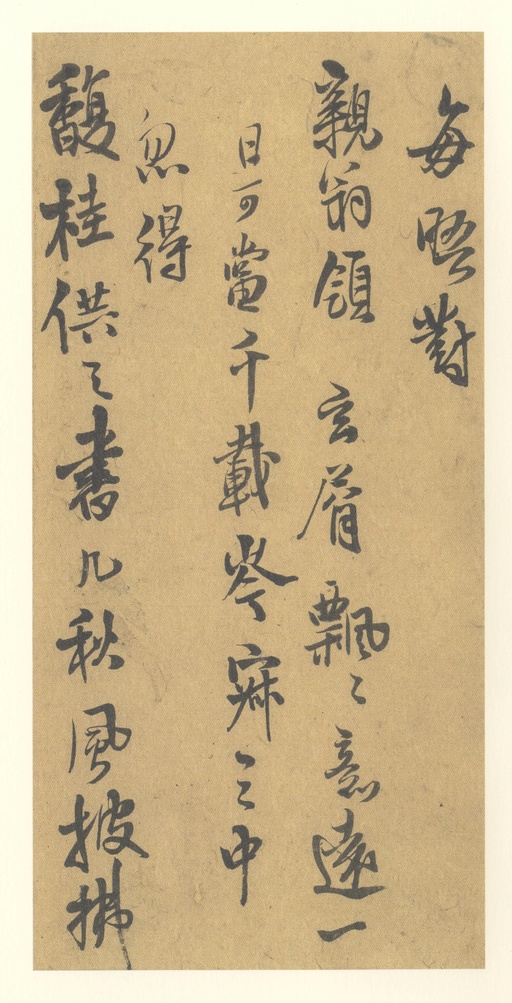 每晤對
親翁領 玄屑飄〻意遠一
日可當千載岑寂之中
忽得
馥桂供之書几秋風披拂